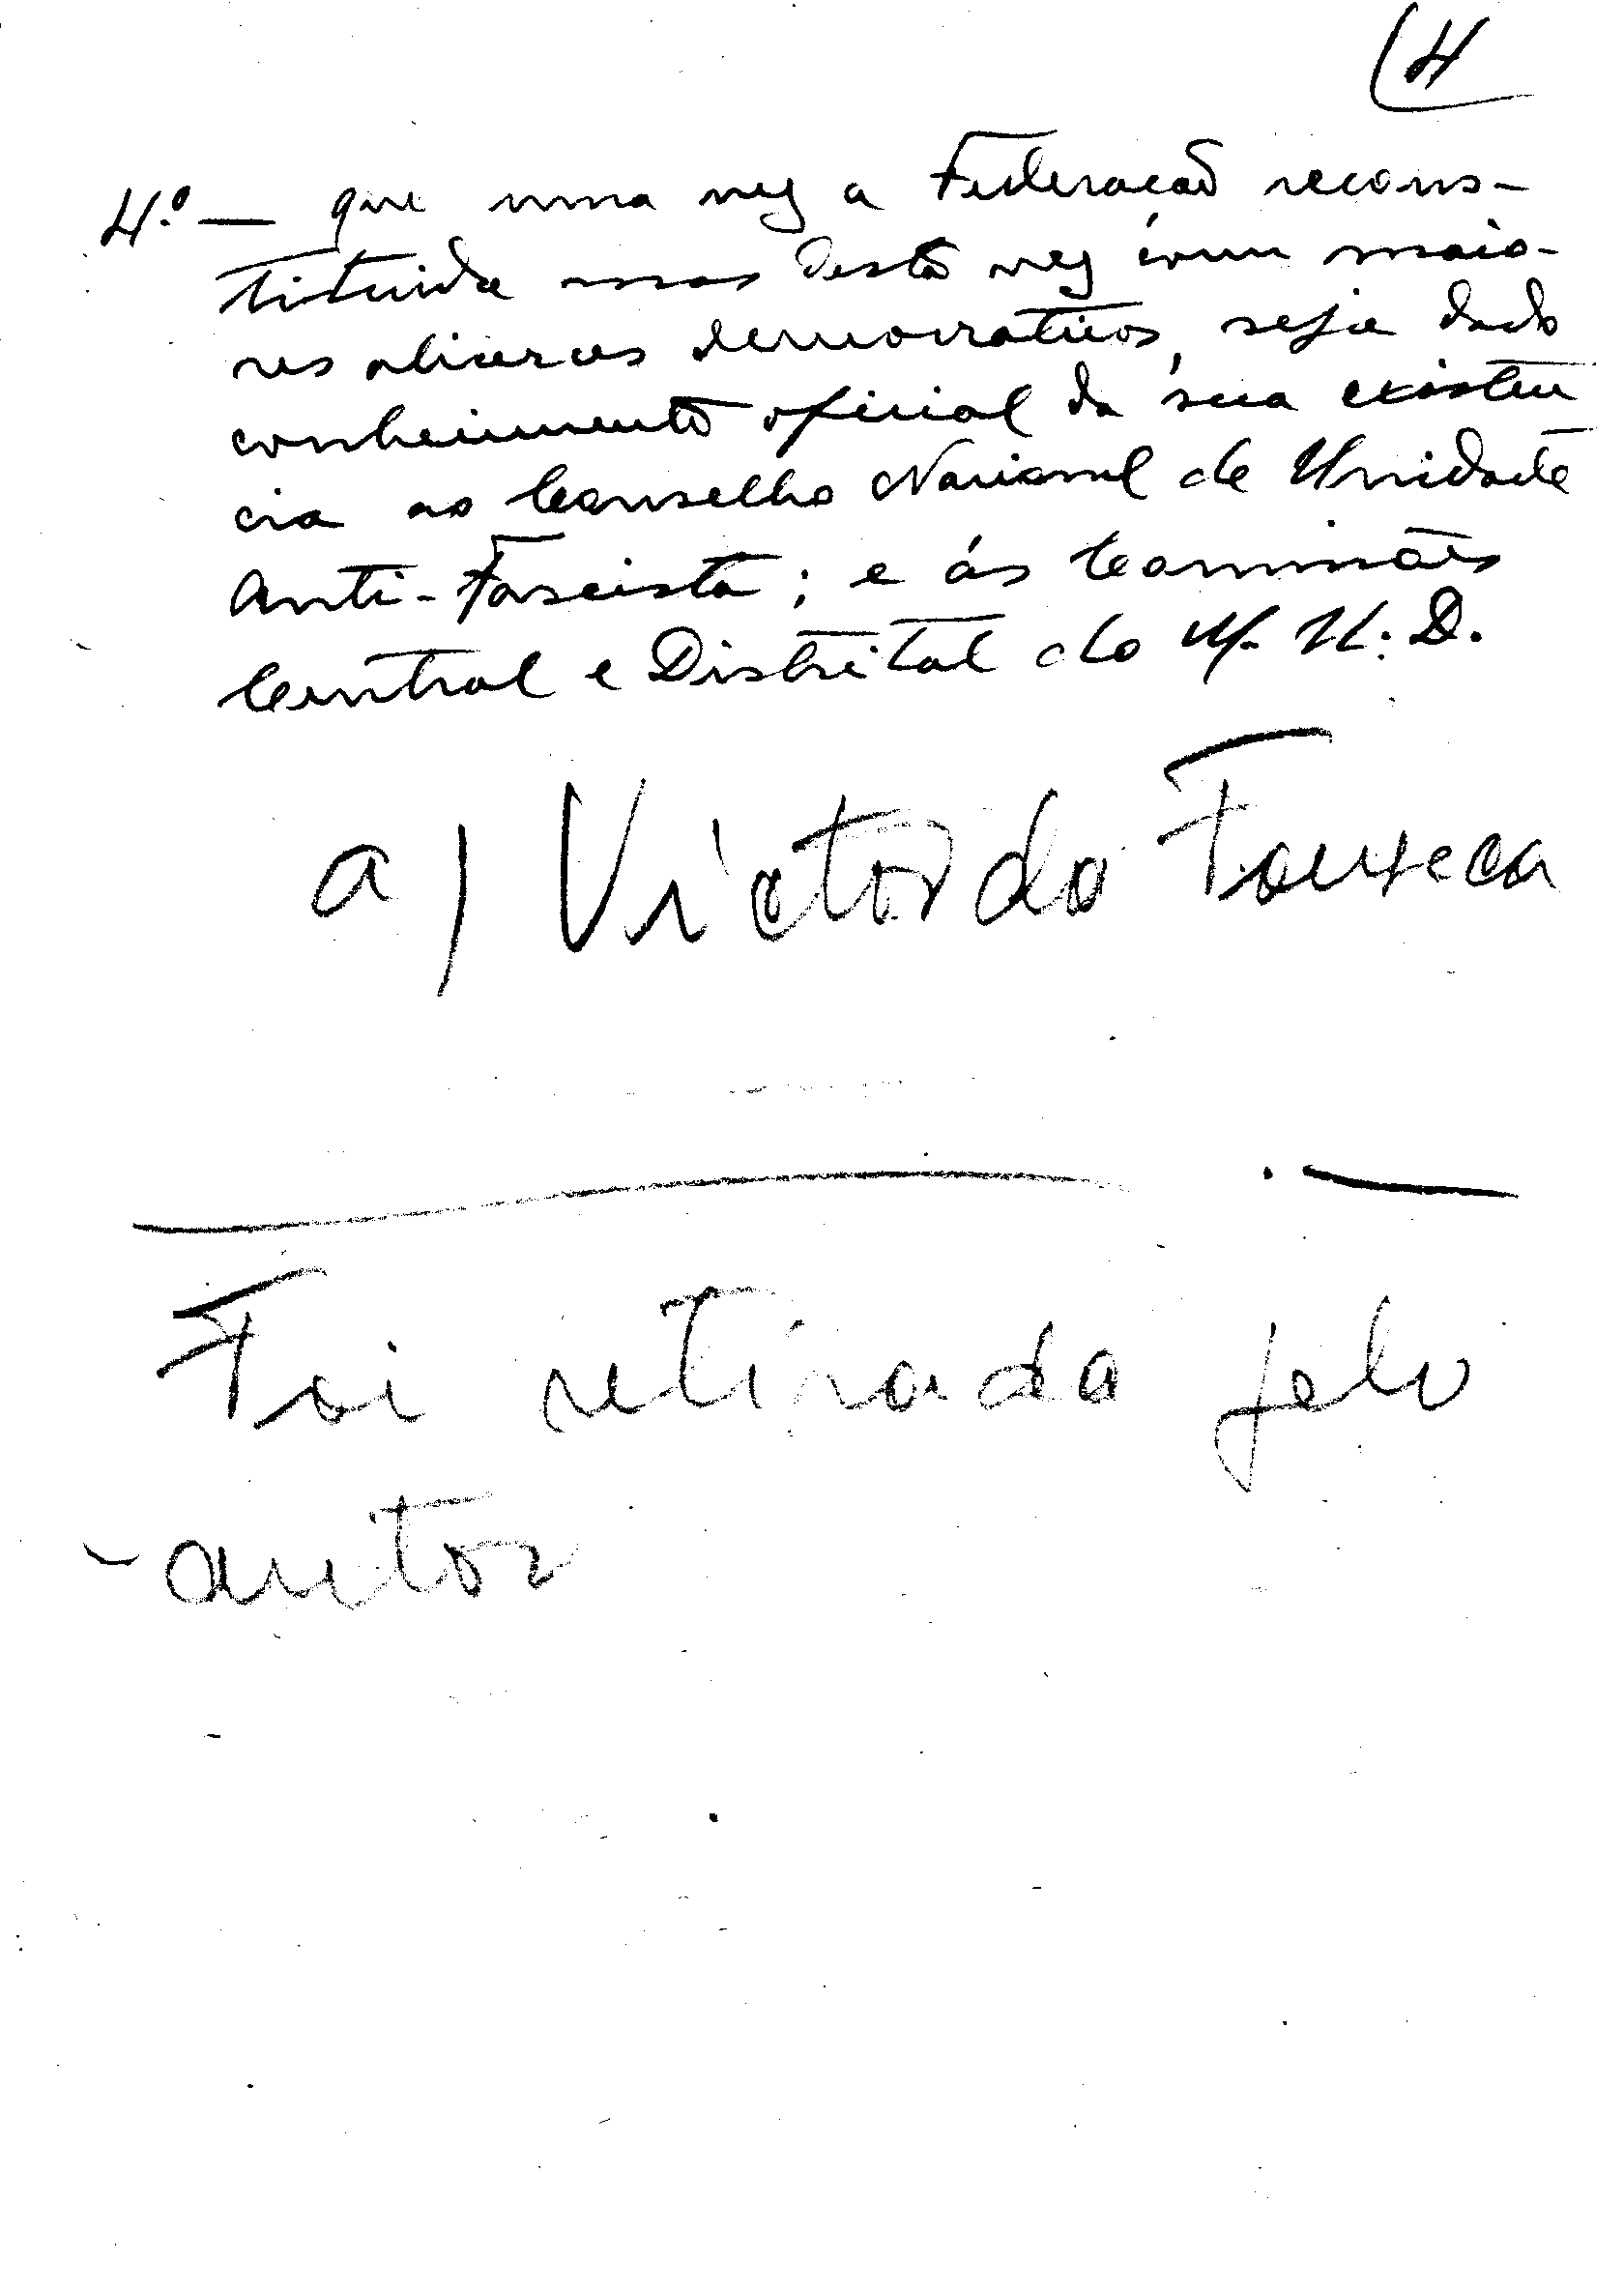 4
4.º — que uma vez a Federacão recons-
tituida mas desta vez com maio-
res alicerces democraticos, seja dado
conhecimento oficial da sua existen
cia ao Conselho Nacional de Unidade
Anti-Fascista; e ás Comissões
Central e Distrital do M. U. D.
a) Victor da Fonseca
Foi retirada pelo
autor